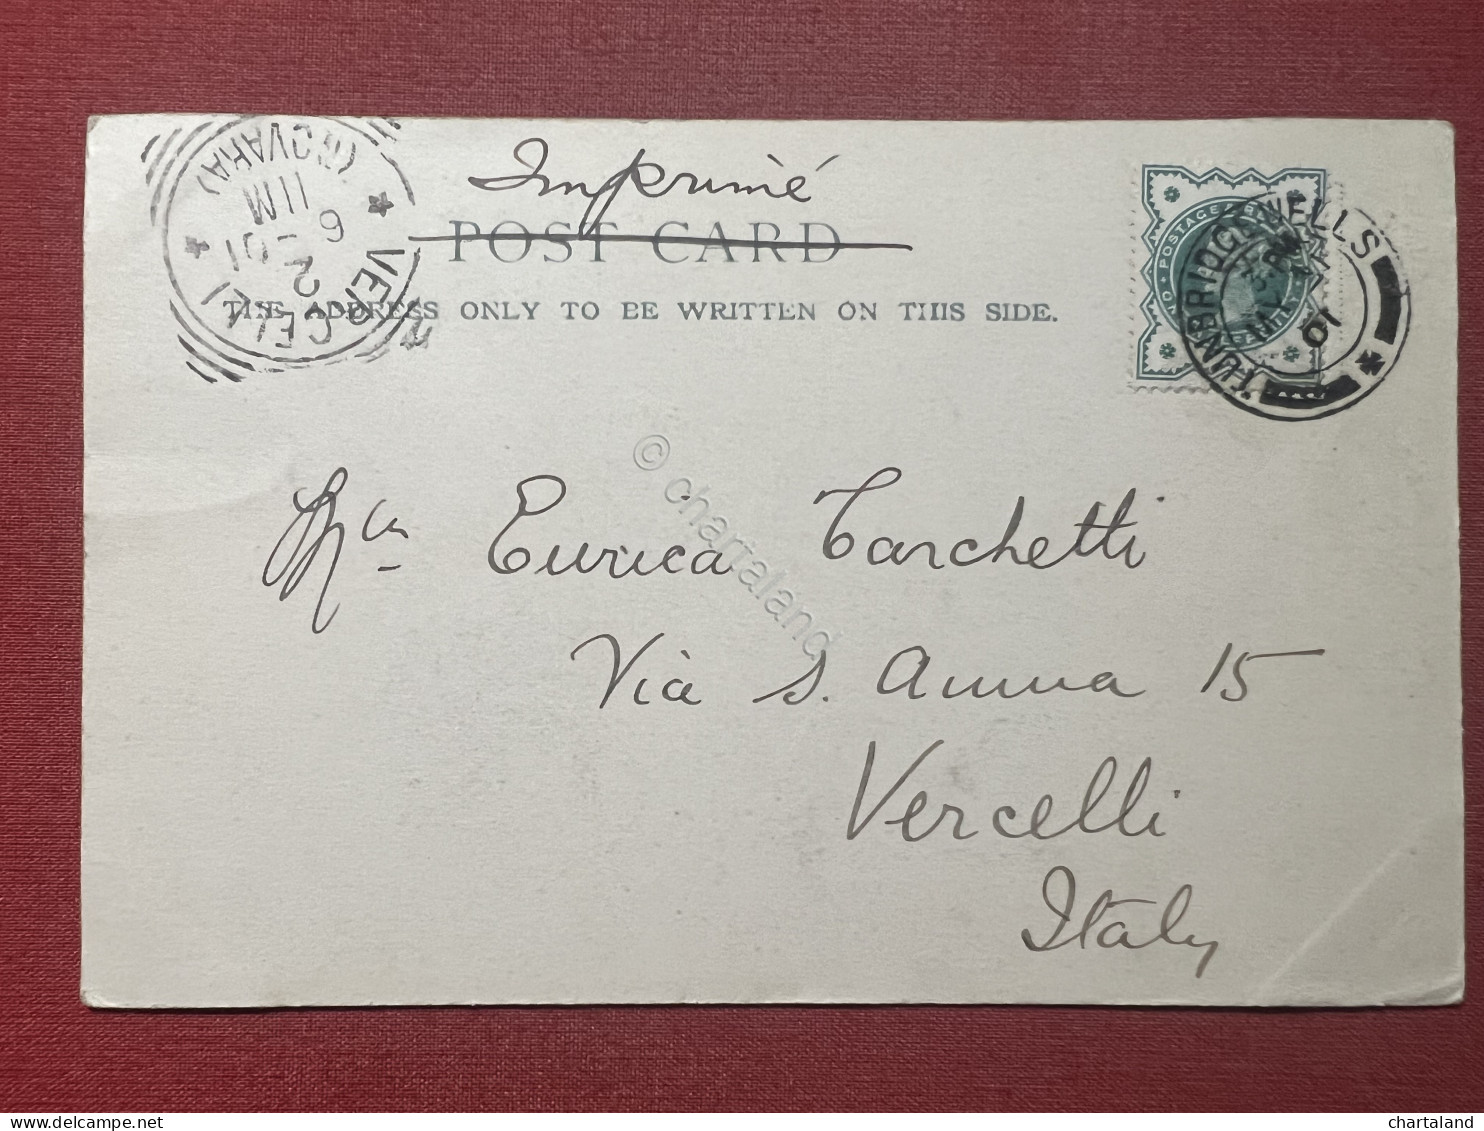 Imprimé
POST CARD
THE ADDRESS ONLY TO BE WRITTEN ON THIS SIDE.
VERCELLI
(NOVARA)
6 - 2 01
11M
TUNBRIDGE WELLS
01
POSTAGE
© chartaland
Eurica Tarchetti
Via S. Anna 15
Vercelli
Italy
chartaland
delcampe.net